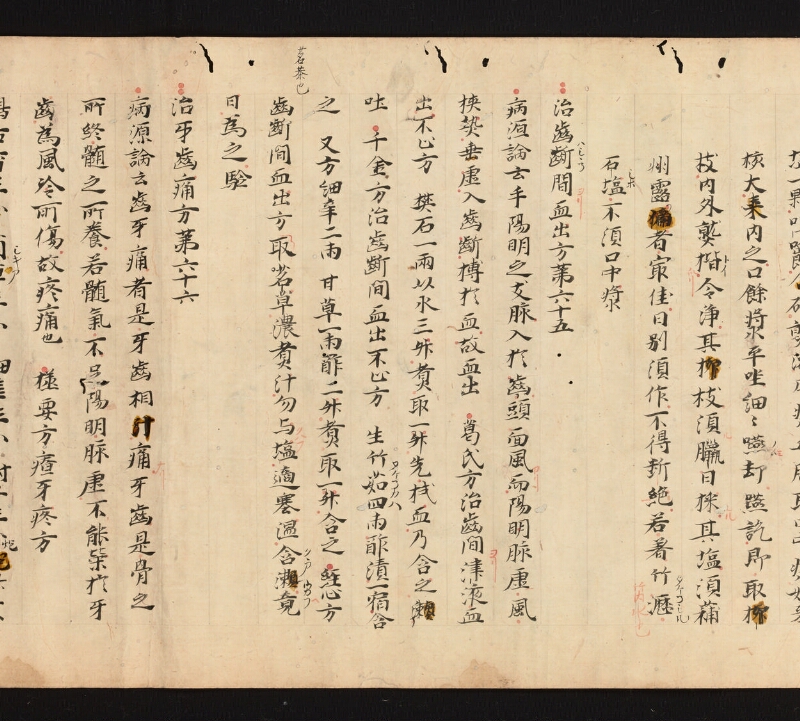 核大棗内之口餘將水平唑細〻嚥却嚥訖即取柳
枝内外熨揩令净其柳枝須臘日採其塩須蒲
州露者冣佳日別須作不得斫絶若著竹瀝
石塩不須口中漿
治齒齗間血出方第六十五
病源論云手陽明之支脉入於齒頭面風而陽明脉虚風
挾熱乗虚入齒齗搏於血故血出 葛氏方治齒間津液血
出不止方 礬石一兩以水三升煮取一升先拭血乃含之
吐 千金方治齒齗間血出不止方 生竹茹四兩酢漬一宿含
之 又方細辛二兩 甘草一兩酢二升煮取一升含之 経心方
齒齗間血出方取茗草濃煮汁勿与塩適寒温含漱竟
茗茶也
日為之驗
治牙齒痛方第六十六
病源論云齒牙痛者是牙齒相付痛牙齒是骨之
所終髄之所養若髄氣不足陽明脉虚不能榮於牙
齒為風冷所傷故疼痛也 極要方瘥牙疼方